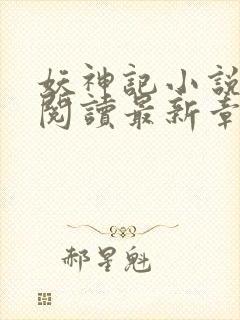 妖神記小說
閱讀最新章
郝星魁